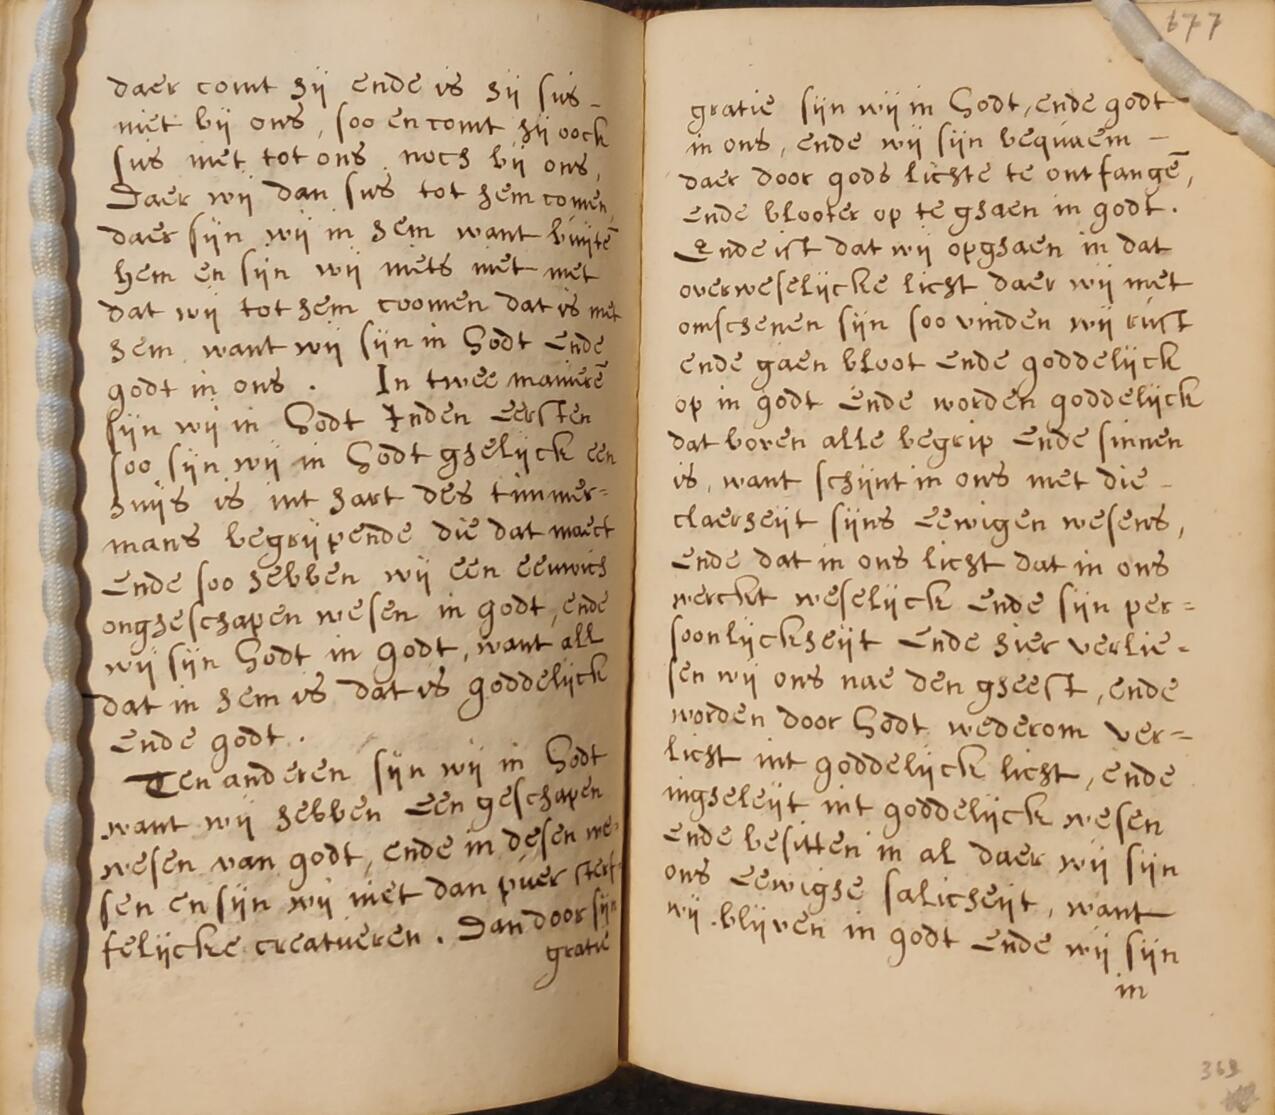 daer comt hij ende is hij sus-
niet bij ons, soo en comt hij oock
sus niet tot ons noch bij ons,
Daer wij dan sus tot hem comen,
daer sijn wij in hem want buijtē
hem en sijn wij niets niet met
dat wij tot hem coomen dat is met
hem want wij sijn in Godt Ende
godt in ons. In twee manierē
sijn wij in Godt Inden Eersten
soo sijn wij in Godt ghelijck een
huijs is int hart des timmer=
mans begrijpende die dat maect
Ende soo hebben wij een eeuwich
ongheschapen wesen in godt, ende
wij sijn Godt in godt, want all
dat in hem is dat is goddelijck
Ende godt.
Ten anderen sijn wij in Godt
want wij hebben Een geschapen
wesen van godt, ende in desen we=
sen en sijn wij niet dan puer sterf=
felijcke creatueren. Dan door sijn
gratie
677
gratie sijn wij in Godt, ende godt
in ons, ende wij sijn bequaem -
daer door gods lichte te ontfangē,
ende blooter op te ghaen in godt.
Ende ist dat wij opghaen in dat
overweselijcke licht daer wij met
omschenen sijn soo vinden wij rust
ende gaen bloot Ende goddelijck
op in godt Ende worden goddelijck
dat boven alle begrip Ende sinnen
is, want schijnt in ons met die -
claerheijt sijns Eewigen wesens,
Ende dat in ons licht dat in ons
werckt weselijck Ende sijn per=
soonlijckheijt Ende hier verlie=
sen wij ons nae den gheest, ende
worden door Godt wederom ver=
licht int goddelijck licht, ende
ingheleijt int goddelijck wesen
Ende besitten in al daer wij sijn
ons Eewighe salicheijt, want
wij blijven in godt Ende wij sijn
in
369